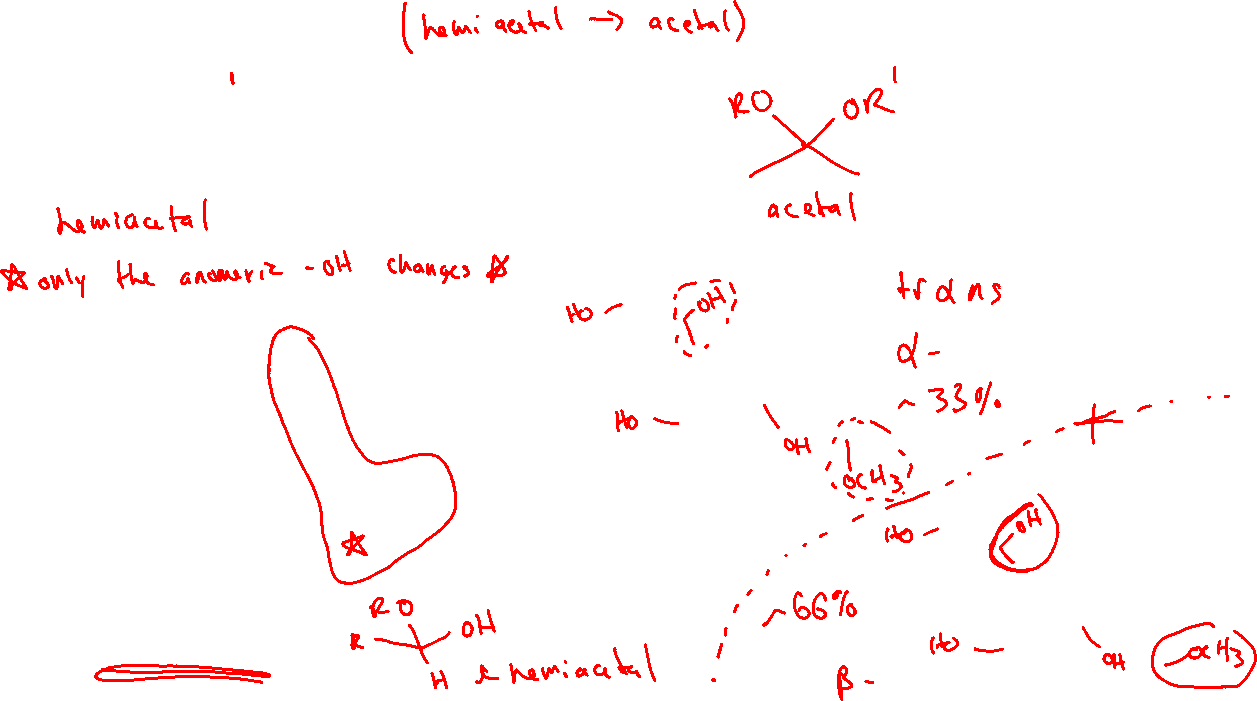 (hemiacetal → acetal)
RO OR'
acetal
hemiacetal
☆ only the anomeric -OH changes ☆
HO OH
trans
α-
~33%
HO OH
OCH3
HO OH
☆
RO
R OH
H hemiacetal
~66%
HO OH OCH3
β-